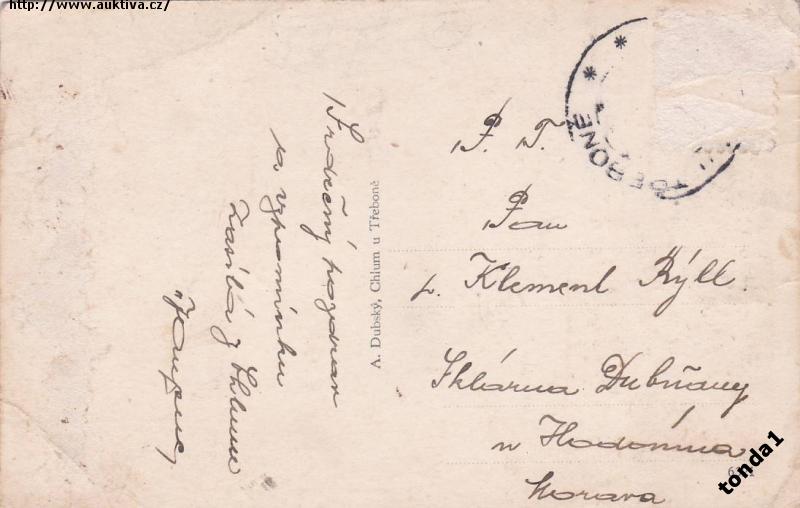 http://www.auktiva.cz/
Srdečný pozdrav
a vzpomínku
zasílá z Chlumu
A. Dubský, Chlum u Třeboně
TŘEBONĚ
P. T.
Pan
p. Klement Rýll.
Sklárna Dubňany
u Hodonína
Morava
tonda1